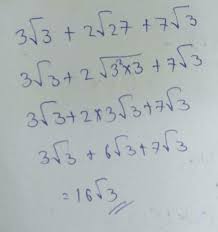 3√3 + 2√27 + 7√3
3√3 + 2√3²×3 + 7√3
3√3 + 2×3√3 + 7√3
3√3 + 6√3 + 7√3
= 16√3